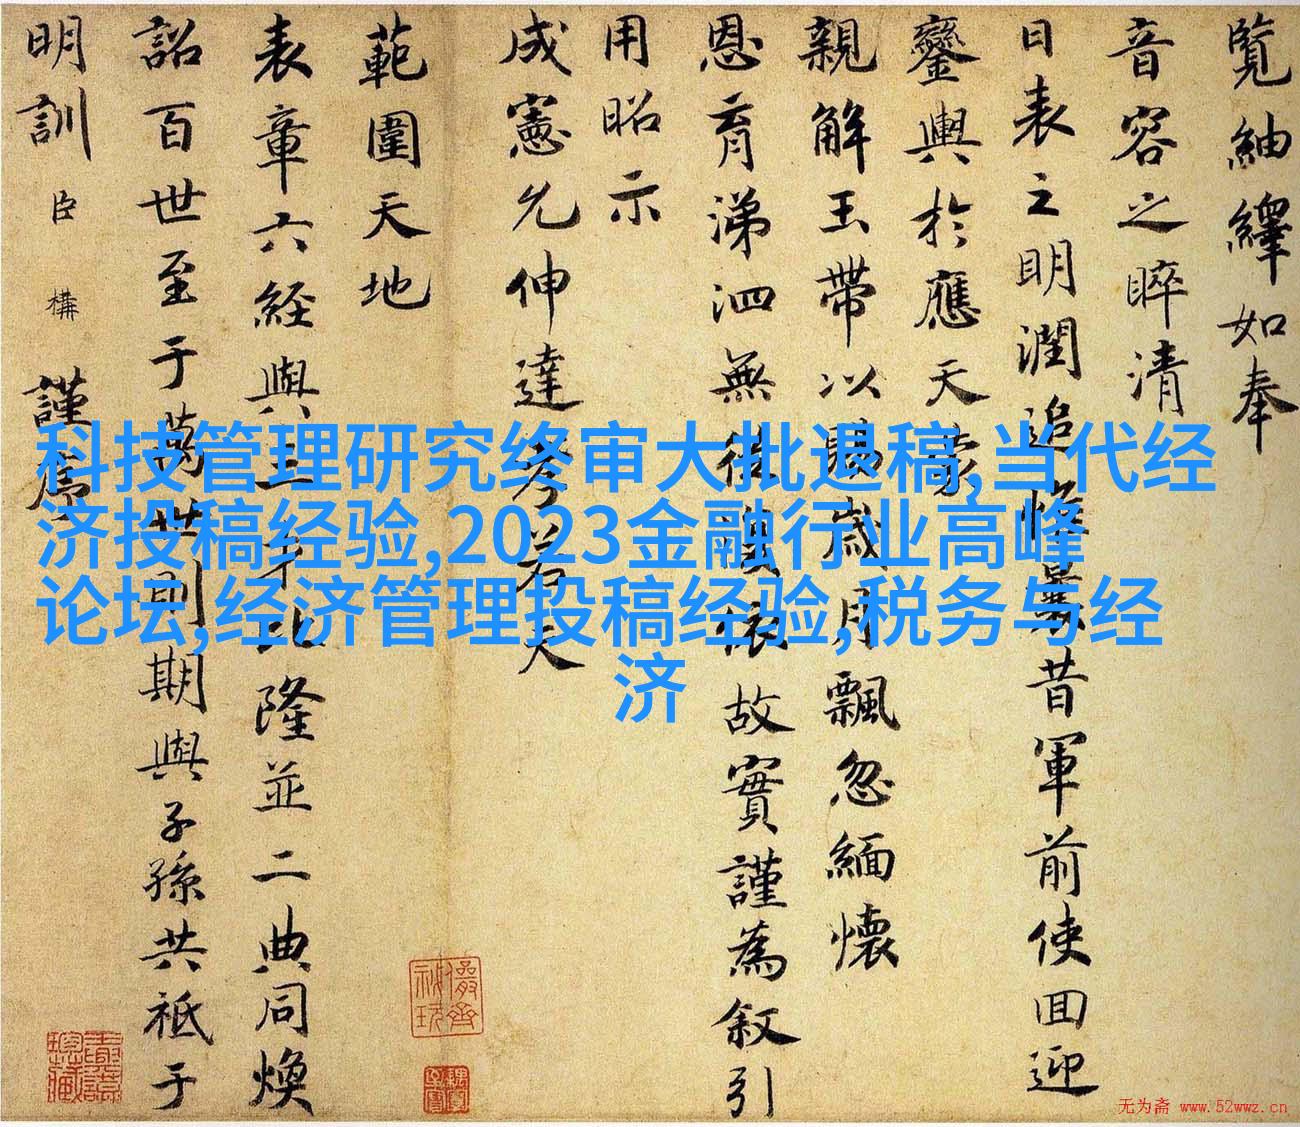 覽紬繹如奉
音容之睟清
日表之明潤追惟曩昔軍前使回迎
鑾輿於應天蒙
親解玉帶以賜歲月飄忽緬懷
恩育涕泗無從依故實謹為叙引
用昭示
成憲允伸達孝若夫
範圍天地
表章六経與三比隆並二典同煥
詔百世至于萬世則期與子孫共祗于
明訓臣構謹序
科技管理研究终审大批退稿,当代经
济投稿经验,2023金融行业高峰
论坛,经济管理投稿经验,税务与经
济
无为斋 www.52wwz.cn